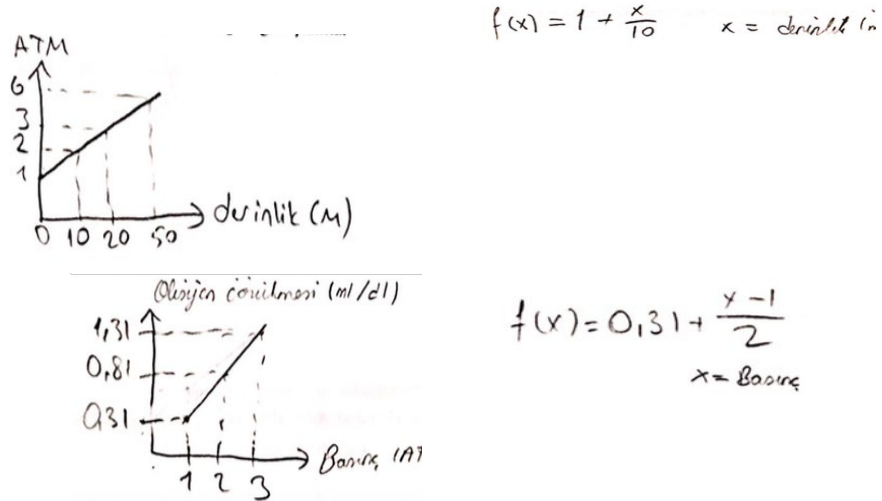 ATM
6
3
2
1
0 10 20 50
derinlik (M)
f(x) = 1 + x/10
x = derinlik (m
Oksijen çözülmesi (ml/dl)
1,31
0,81
0,31
1 2 3
Basınç (AT
f(x) = 0,31 + x-1/2
x = Basınç